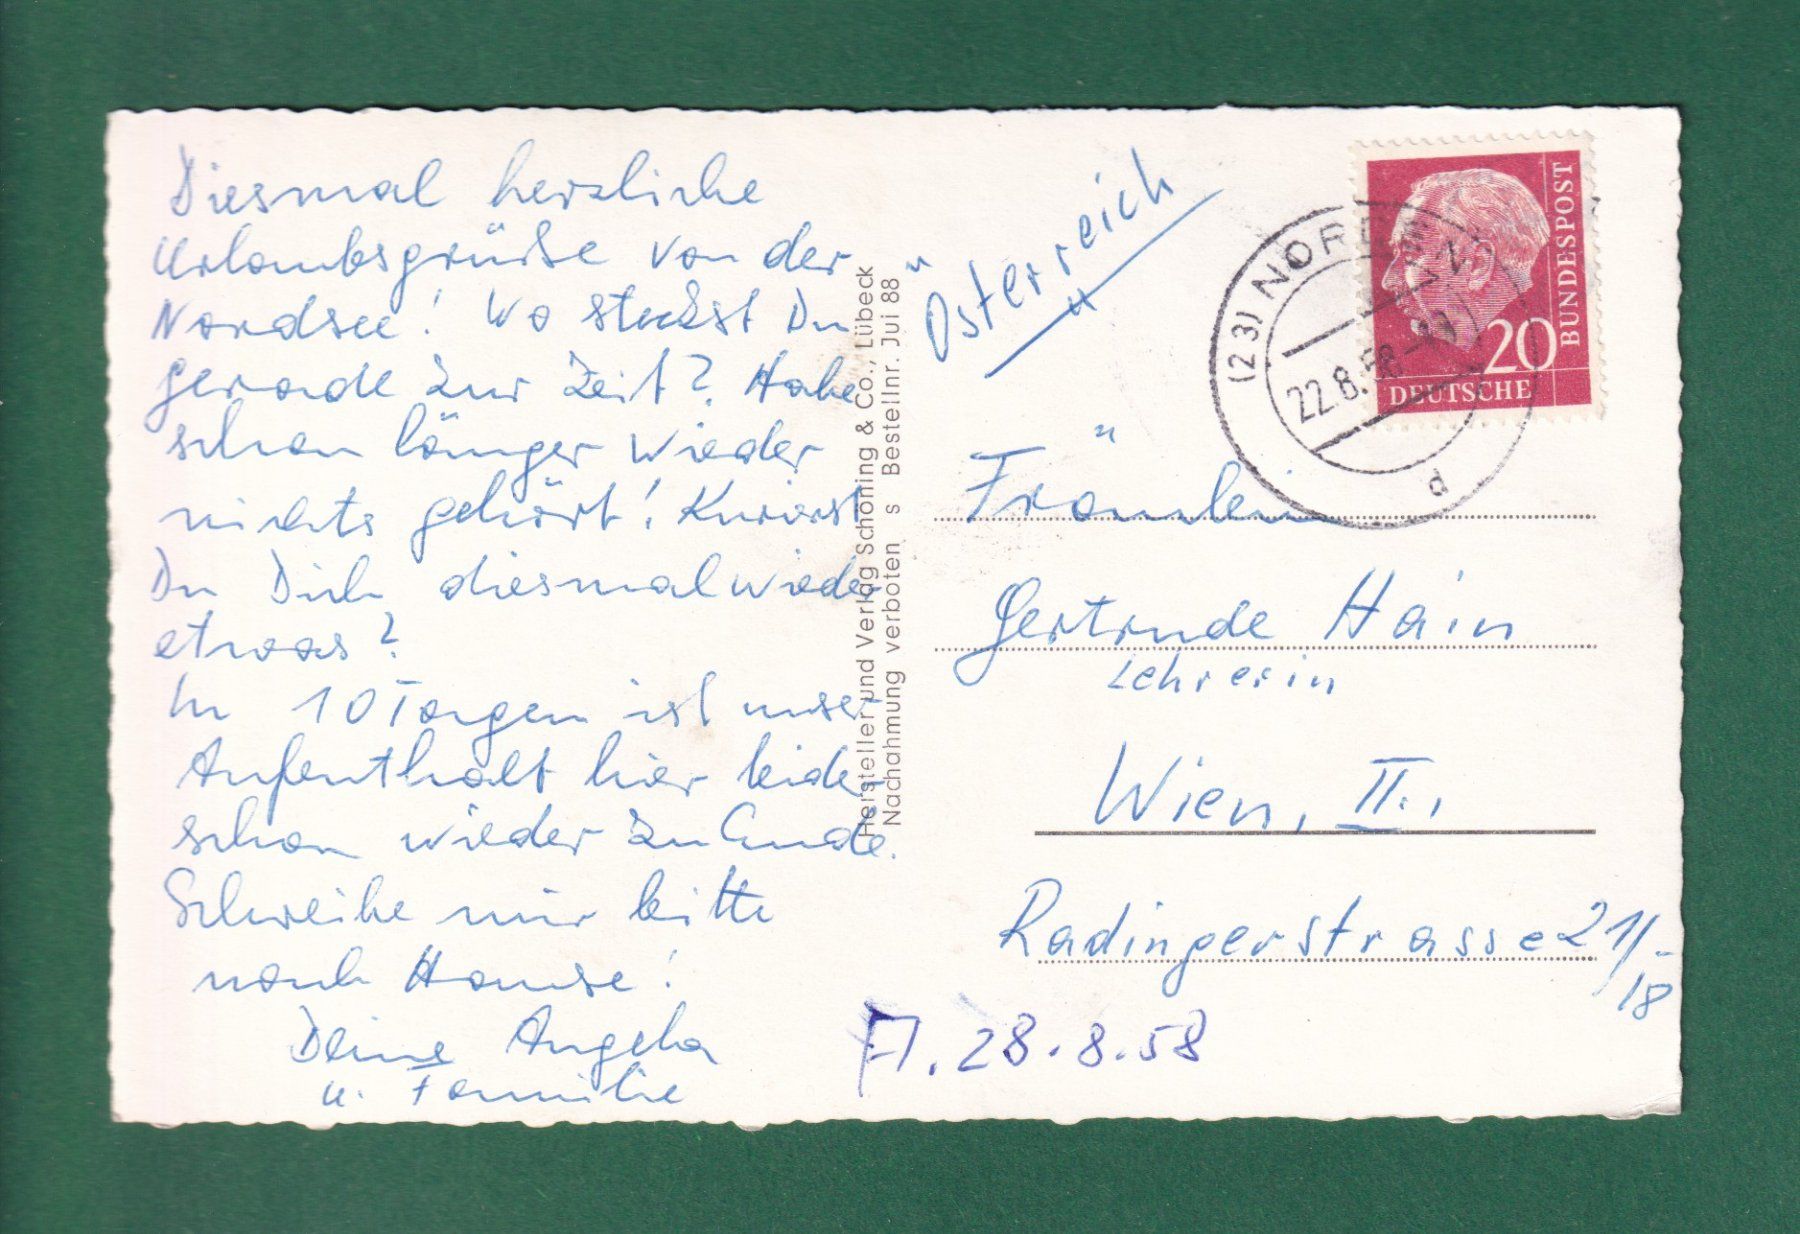 Diesmal herzliche
Urlaubsgrüße von der
Nordsee! Wo steckst Du
gerade zur Zeit? Habe
schon länger wieder
nichts gehört! Kurierst
Du Dich diesmal wieder
etwas?
In 10 Tagen ist unser
Aufenthalt hier leider
schon wieder zu Ende.
Schreibe mir bitte
nach Hause!
Deine Angela
u. Familie
Hersteller und Verlag Schöning & Co., Lübeck
Nachahmung verboten s Bestellnr. Jui 88
Österreich
(23) NORD
22.8.58
d
20
DEUTSCHE
BUNDESPOST
Fräulein
Gertrude Hain
Lehrerin
Wien, II.,
Radingerstrasse 21/-
18
28.8.58